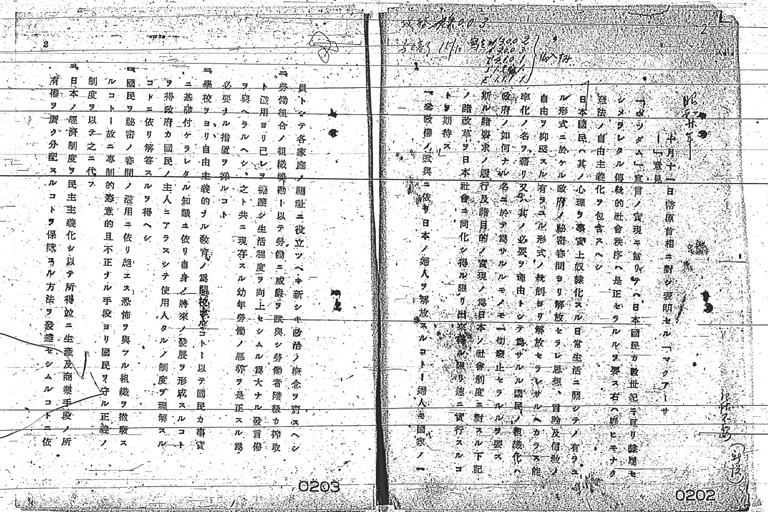 十月十一日幣原首相ニ對シ表明セル「マクアーサ
ー」意見
「ポツダム」宣言ノ實現ニ當リテハ日本國民カ數世紀ニ亘リ隷屬セ
シメラレタル傳統的社會秩序ハ是正セラルルヲ要ス右ハ疑ヒモナク
憲法ノ自由主義化ヲ包含スヘシ
日本國民ハ其ノ心理ヲ事實上奴隷化スル日常生活ニ關シテノ有ラユ
ル形式ニ於ケル政府ノ秘密審問ヨリ解放セラレ思想、言論及信教ノ
自由ヲ抑壓スル有ラユル形式ノ統制ヨリ解放セラレサルヘカラス能
率化ノ名ヲ藉リ又ハ其ノ必要ヲ理由トシテ爲サルル國民ノ組織化ハ
政府ノ如何ナル名ニ於テ爲サルルモノモ一切廢止セラルルヲ要ス
斯ル諸要求ノ履行及諸目的ノ實現ノ爲日本ノ社會制度ニ對スル下記
ノ諸改革ヲ日本社會ニ同化シ得ル限リ出來得ル限リ速ニ實行スルコ
トヲ期待ス
參政權ノ賦與ニ依リ日本ノ婦人ヲ解放スルコト―婦人モ國家ノ一
0202
員トシテ各家庭ノ福祉ニ役立ツヘキ新シキ政治ノ概念ヲ齎スヘシ
勞働組合ノ組織獎勵―以テ勞働ニ威嚴ヲ賦與シ勞働者階級カ搾取
ト濫用ヨリ己レヲ擁護シ生活程度ヲ向上セシムル爲大ナル發言權
ヲ與ヘラルヘシ、之ト共ニ現存スル幼年勞働ノ惡弊ヲ是正スル爲
必要ナル措置ヲ採ルコト
學校ヲヨリ自由主義的ナル教育ノ爲開校スルコト―以テ國民カ事實
ニ基礎付ケラレタル知識ニ依リ自身ノ將來ノ發展ヲ形成スルコト
ヲ得政府カ國民ノ主人ニアラスシテ使用人タルノ制度ヲ理解スル
コトニ依リ解答スルヲ得ヘシ
國民ヲ秘密ノ審問ノ濫用ニ依リ絶エス恐怖ヲ與フル組織ヲ撤廢ス
ルコト―故ニ專制的恣意的且不正ナル手段ヨリ國民ヲ守ル正義ノ
制度ヲ以テ之ニ代フ
日本ノ經濟制度ヲ民主主義化シ以テ所得竝ニ生產及商業手段ノ所
有權ヲ廣ク分配スルコトヲ保障スル方法ヲ發達セシムルコトニ依
2
0203